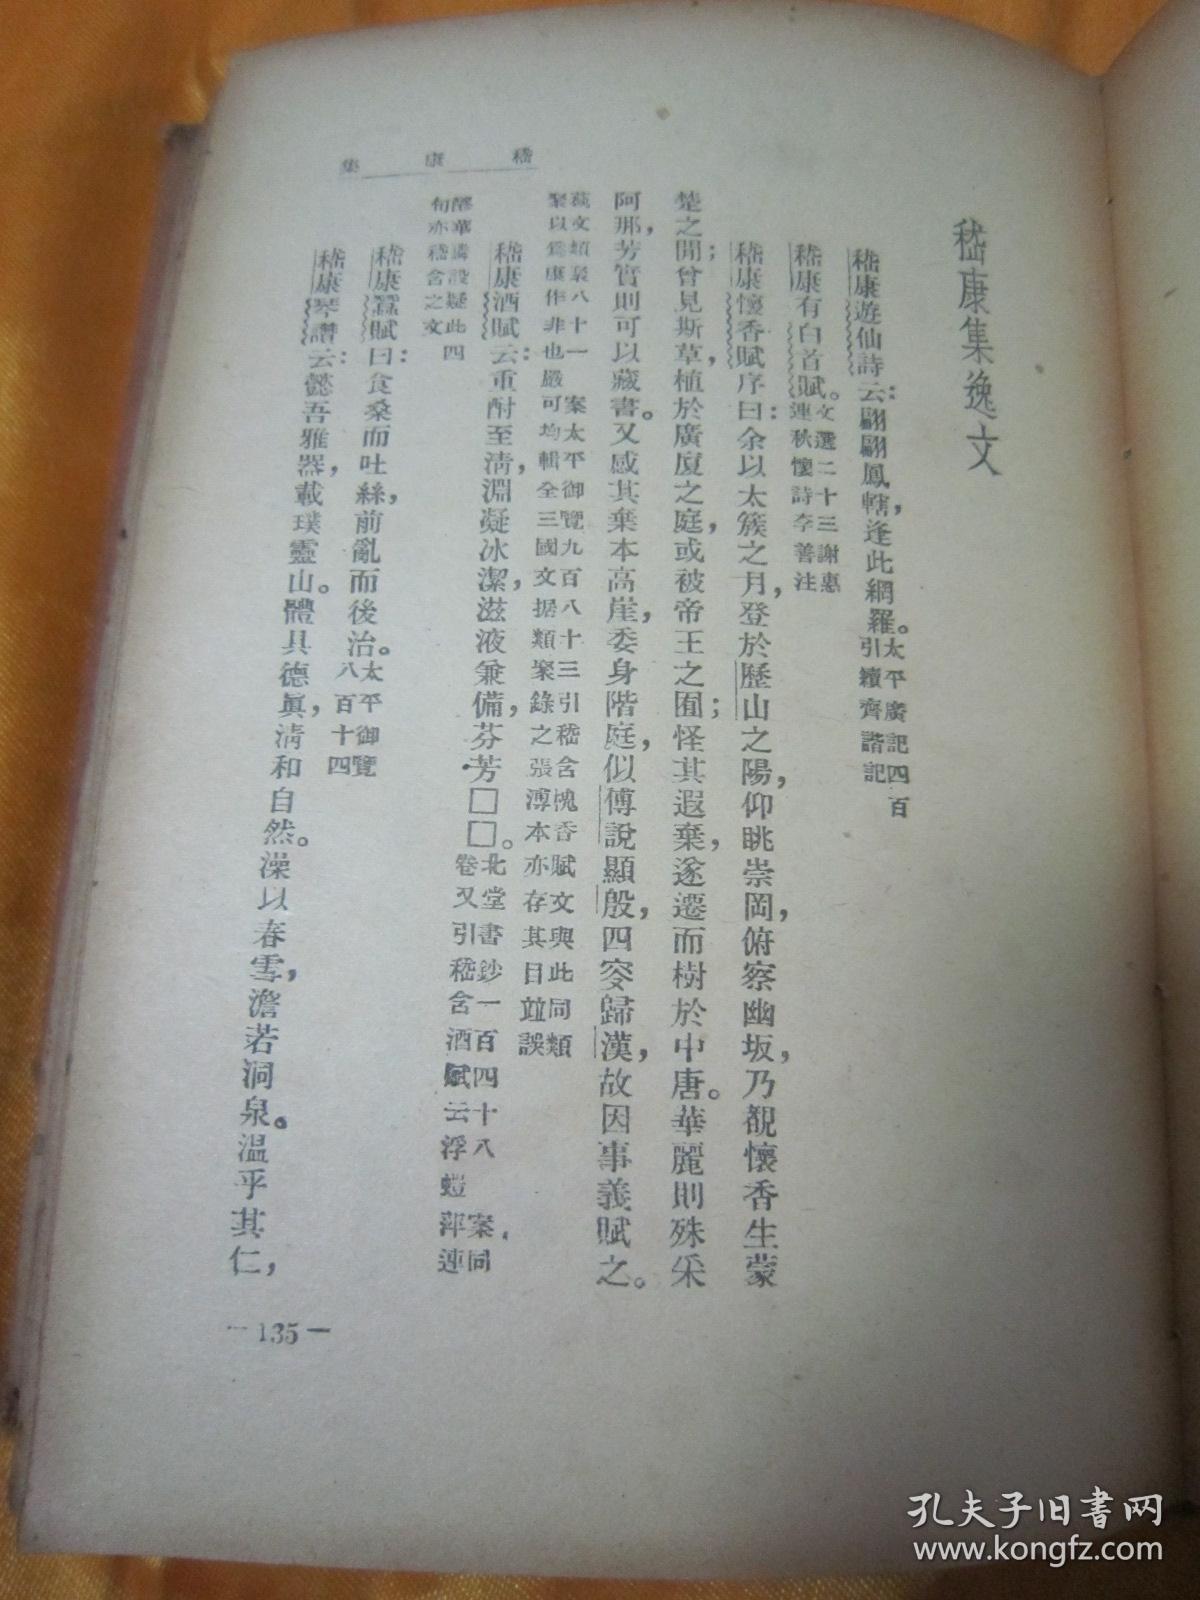 嵇康集逸文
嵇康遊仙詩云：翩翩鳳轄，逢此網羅。太平廣記四百引續齊諧記
嵇康有白首賦。文選二十三謝惠連秋懷詩李善注
嵇康懷香賦序曰：余以太簇之月，登於歷山之陽，仰眺崇岡，俯察幽坂，乃覩懷香生蒙
楚之閒；曾見斯草，植於廣廈之庭，或被帝王之囿；怪其遐棄，遂遷而樹於中唐。華麗則殊采
阿那，芳實則可以藏書。又感其棄本高崖，委身階庭，似傅說顯殷，四叟歸漢，故因事義賦之。
藝文類聚八十一 案太平御覽九百八十三引嵇含槐香賦文與此同類
聚以爲康作非也嚴可均輯全三國文据類聚錄之張溥本亦存其目竝誤
嵇康酒賦云：重酎至清，淵凝冰潔，滋液兼備，芬芳□□。北堂書鈔一百四十八 案同卷又引嵇含酒賦云浮螘萍連
醪華鱗設疑此四句亦嵇含之文
嵇康蠶賦曰：食桑而吐絲，前亂而後治。太平御覽八百十四
嵇康琴讚云：懿吾雅器，載璞靈山。體具德眞，清和自然。澡以春雪，澹若洞泉。溫乎其仁，
嵇康集
—135—
孔夫子旧书网
www.kongfz.com